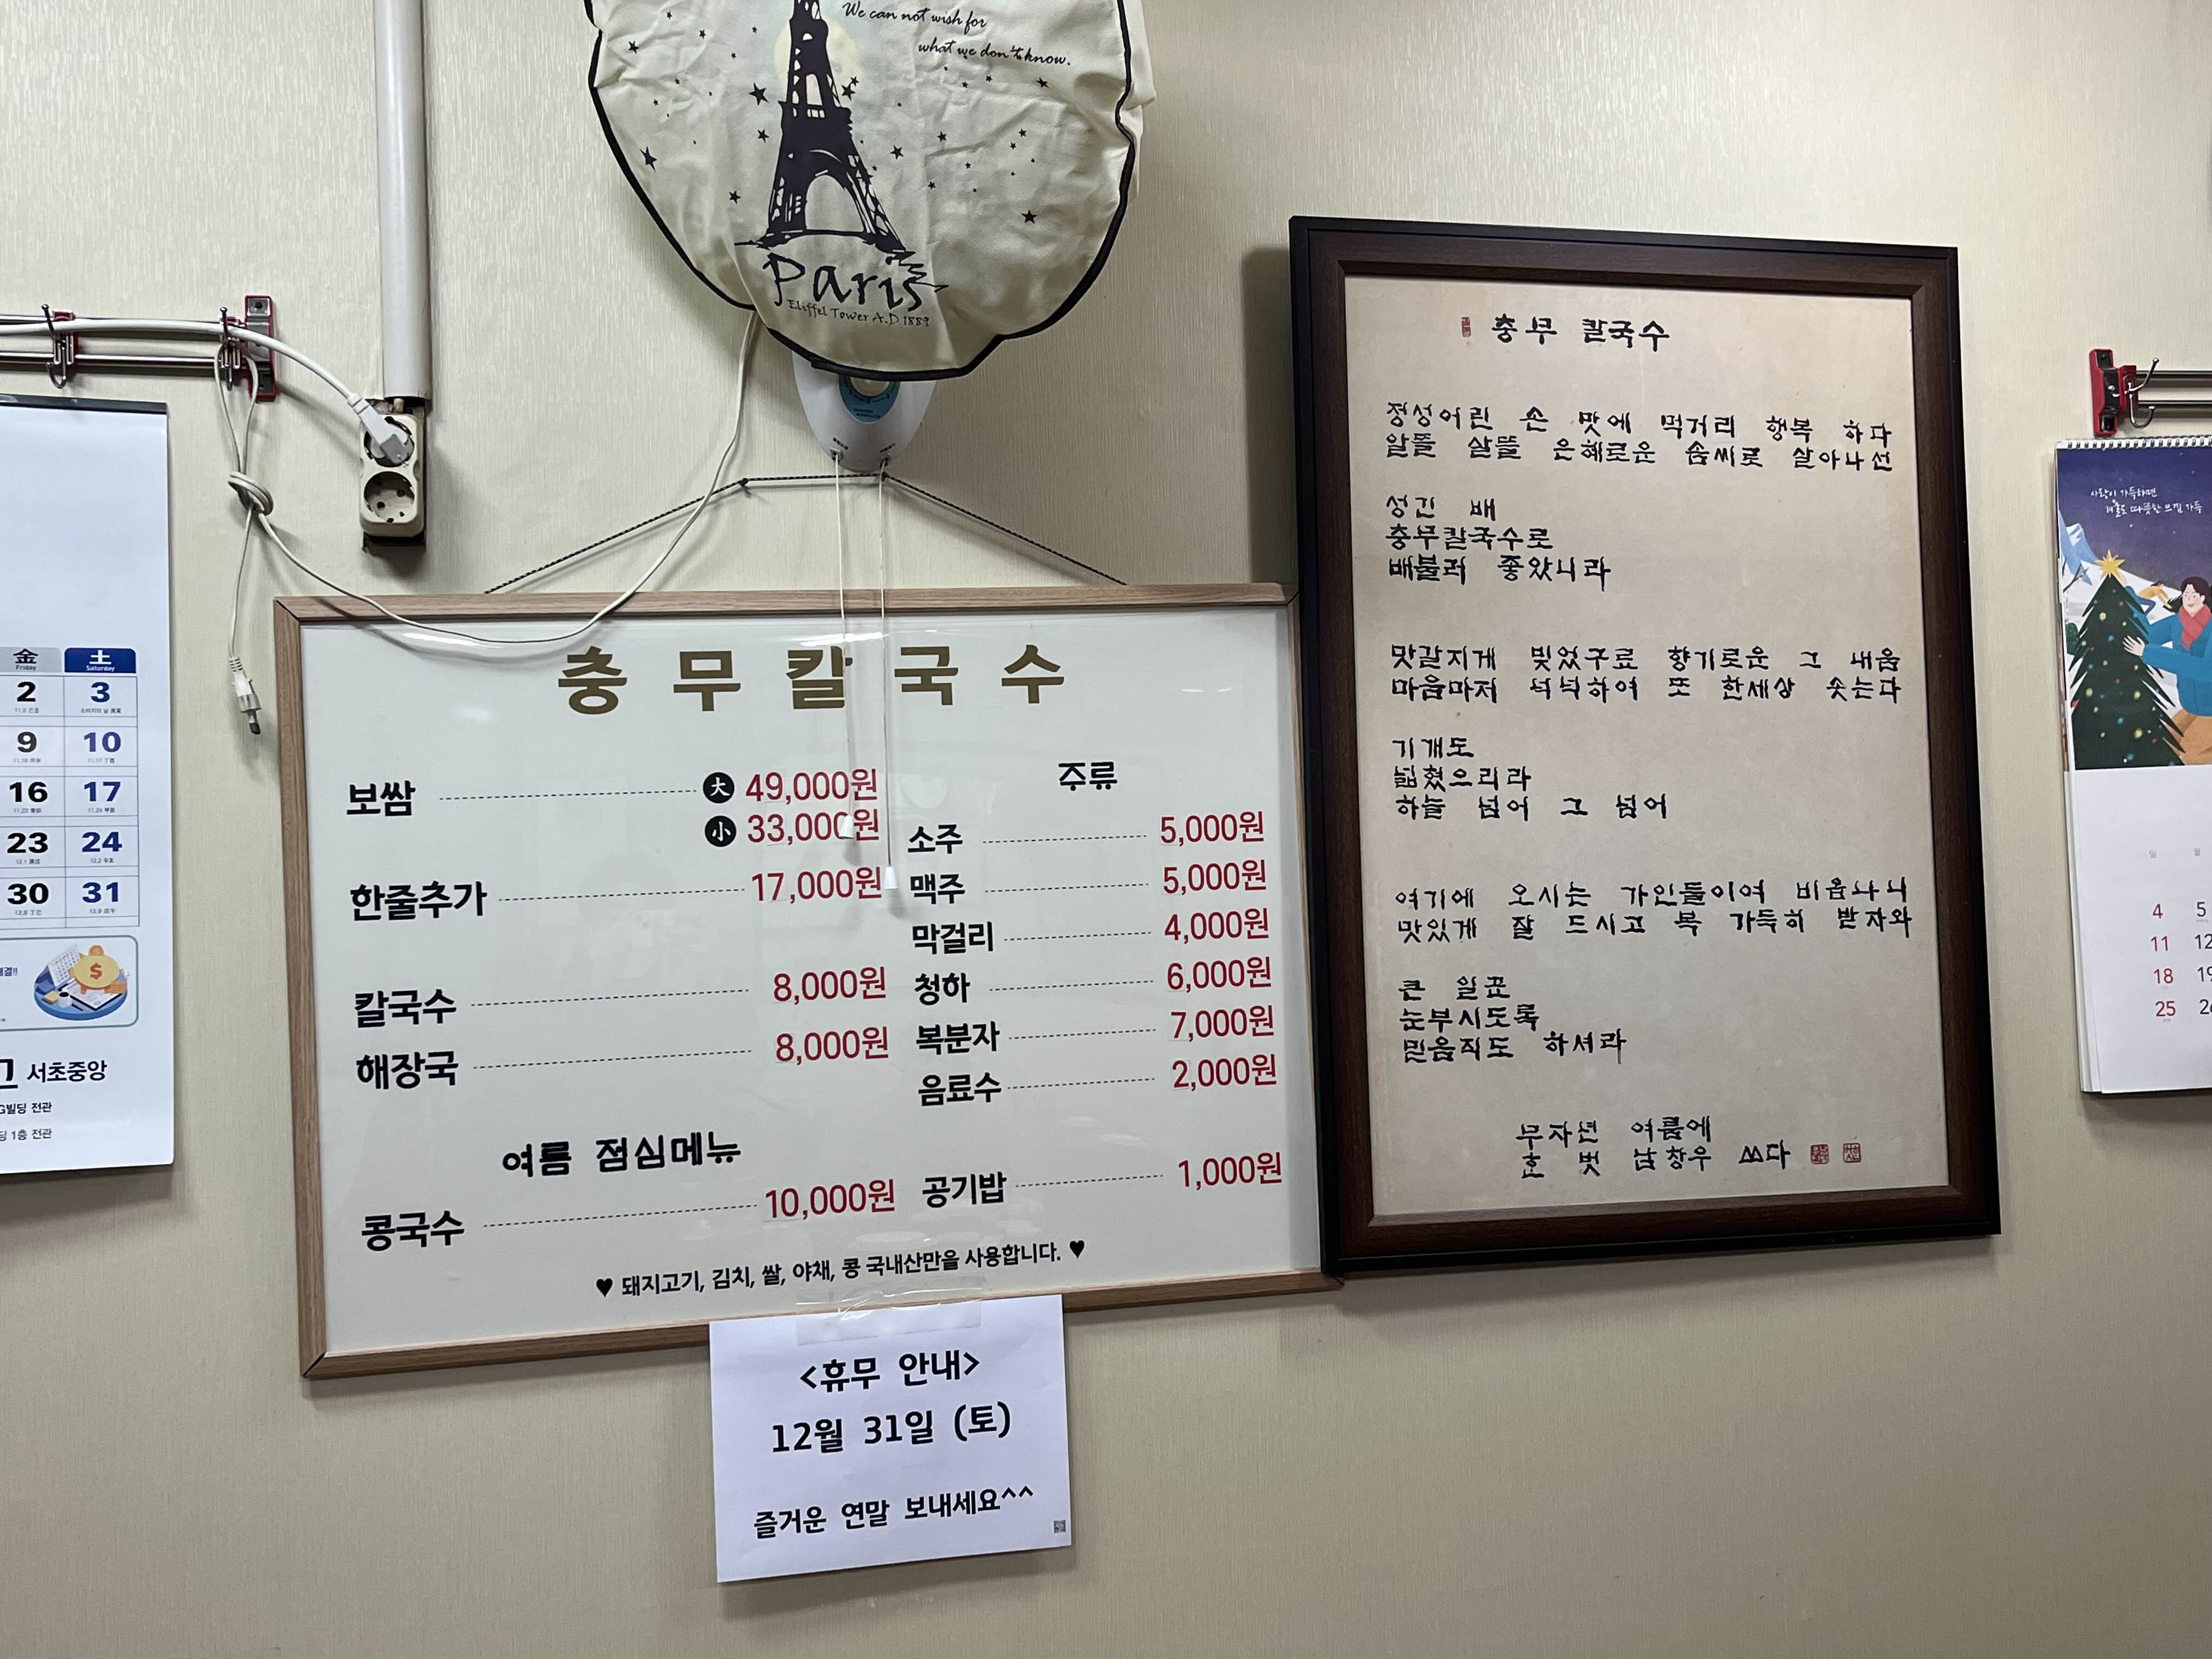 We can not wish for
what we don't know.
Paris
Eliffel Tower A.D 1889
金 土
Friday Saturday
2 3
9 10
16 17
23 24
30 31
서초중앙
빌딩 전관
1층 전관
충무칼국수
보쌈 大 49,000원
小 33,000원
한줄추가 17,000원
칼국수 8,000원
해장국 8,000원
여름 점심메뉴
콩국수 10,000원
주류
소주 5,000원
맥주 5,000원
막걸리 4,000원
청하 6,000원
복분자 7,000원
음료수 2,000원
공기밥 1,000원
♥ 돼지고기, 김치, 쌀, 야채, 콩 국내산만을 사용합니다. ♥
<휴무 안내>
12월 31일 (토)
즐거운 연말 보내세요^^
충무 칼국수
정성어린 손 맛에 먹거리 행복 하다
알뜰 살뜰 은혜로운 솜씨로 살아나선
성긴 배
충무칼국수로
배불러 좋았니라
맛깔지게 빚었구료 향기로운 그 내음
마음마저 넉넉하여 또 한세상 솟는다
기개도
넓혔으리라
하늘 넘어 그 넘어
여기에 오시는 가인들이여 비옵나니
맛있게 잘 드시고 복 가득히 받자와
큰 일꾼
눈부시도록
믿음직도 하셔라
무자년 여름에
벗 남창우 쓰다
사랑이 가득하면
겨울도 따뜻한 느낌 가득
일 월
4 5
11 12
18
25